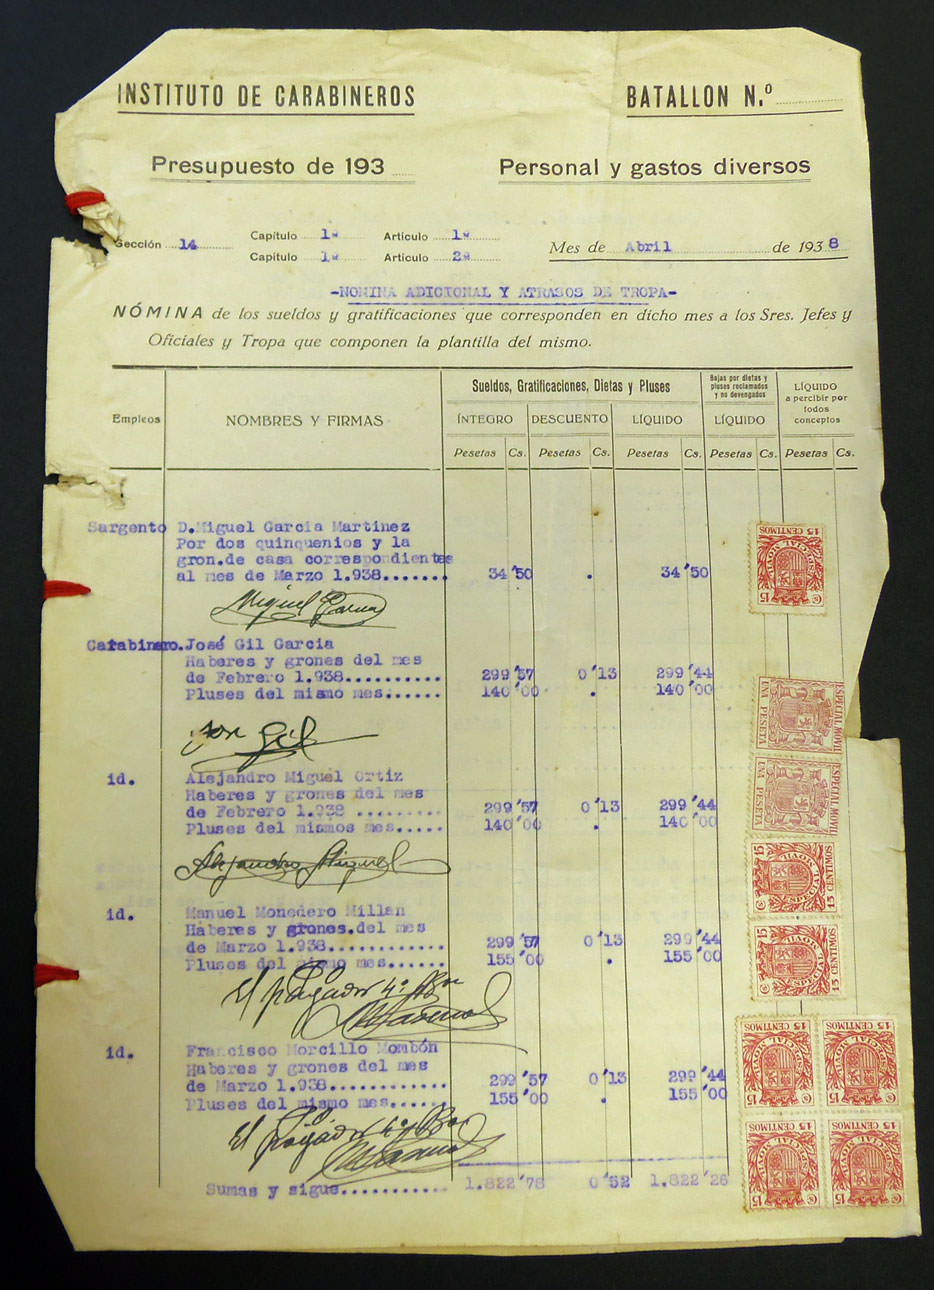 INSTITUTO DE CARABINEROS BATALLON N.º
Presupuesto de 193 Personal y gastos diversos
Sección 14 Capítulo 1º Artículo 1º
Capítulo 1º Artículo 2º
Mes de Abril de 1938
-NOMINA ADICIONAL Y ATRASOS DE TROPA-
NÓMINA de los sueldos y gratificaciones que corresponden en dicho mes a los Sres. Jefes y
Oficiales y Tropa que componen la plantilla del mismo.
Empleos NOMBRES Y FIRMAS
Sueldos, Gratificaciones, Dietas y Pluses
ÍNTEGRO DESCUENTO LÍQUIDO
Bajas por dietas y
pluses reclamados
y no devengados
LÍQUIDO
LÍQUIDO
a percibir por
todos
conceptos
Pesetas Cs. Pesetas Cs. Pesetas Cs. Pesetas Cs. Pesetas Cs.
Sargento D.Miguel Garcia Martinez
Por dos quinquenios y la
gron.de casa correspondientes
al mes de Marzo 1.938....... 34'50 . 34'50
Miguel Garcia
Carabinero.José Gil Garcia
Haberes y grones del mes
de Febrero 1.938.......... 299'57 0'13 299'44
Pluses del mismo mes...... 140'00 . 140'00
José Gil
id. Alejandro Miguel Ortiz
Haberes y grones del mes
de Febrero 1.938 ......... 299'57 0'13 299'44
Pluses del mismos mes..... 140'00 . 140'00
Alejandro Miguel
id. Manuel Monedero Millan
Haberes y grones.del mes
de Marzo 1.938............ 299'57 0'13 299'44
Pluses del mismo mes...... 155'00 . 155'00
El pagador 4º Bon
id. Francisco Morcillo Mombón
Haberes y grones del mes
de Marzo 1.938............ 299'57 0'13 299'44
Pluses del mismo mes...... 155'00 . 155'00
El pagador 4º Bon
Sumas y sigue........... 1.822'78 0'52 1.822'26
15 CENTIMOS
ESPECIAL MOVIL
15 Cs
ESPECIAL MOVIL
UNA PESETA
ESPECIAL MOVIL
UNA PESETA
15 CENTIMOS
ESPECIAL MOVIL
15 Cs
15 CENTIMOS
ESPECIAL MOVIL
15 Cs
15 CENTIMOS
ESPECIAL MOVIL
15 Cs
15 CENTIMOS
ESPECIAL MOVIL
15 Cs
15 CENTIMOS
ESPECIAL MOVIL
15 Cs
15 CENTIMOS
ESPECIAL MOVIL
15 Cs